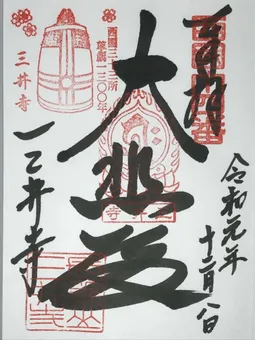 奉拝
令和元年
十二月八日
大悲殿
三井寺
西國三十三所
草創一三〇〇年
三井寺